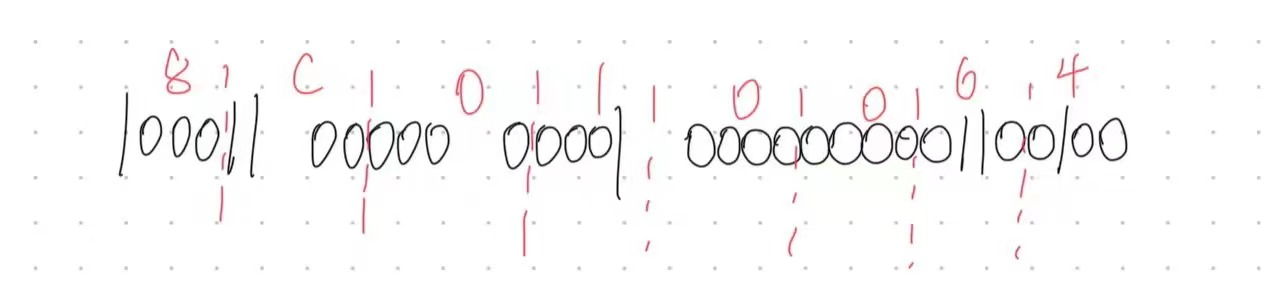 8 C 0 1 0 0 6 4
100011 00000 00001 0000000001100100